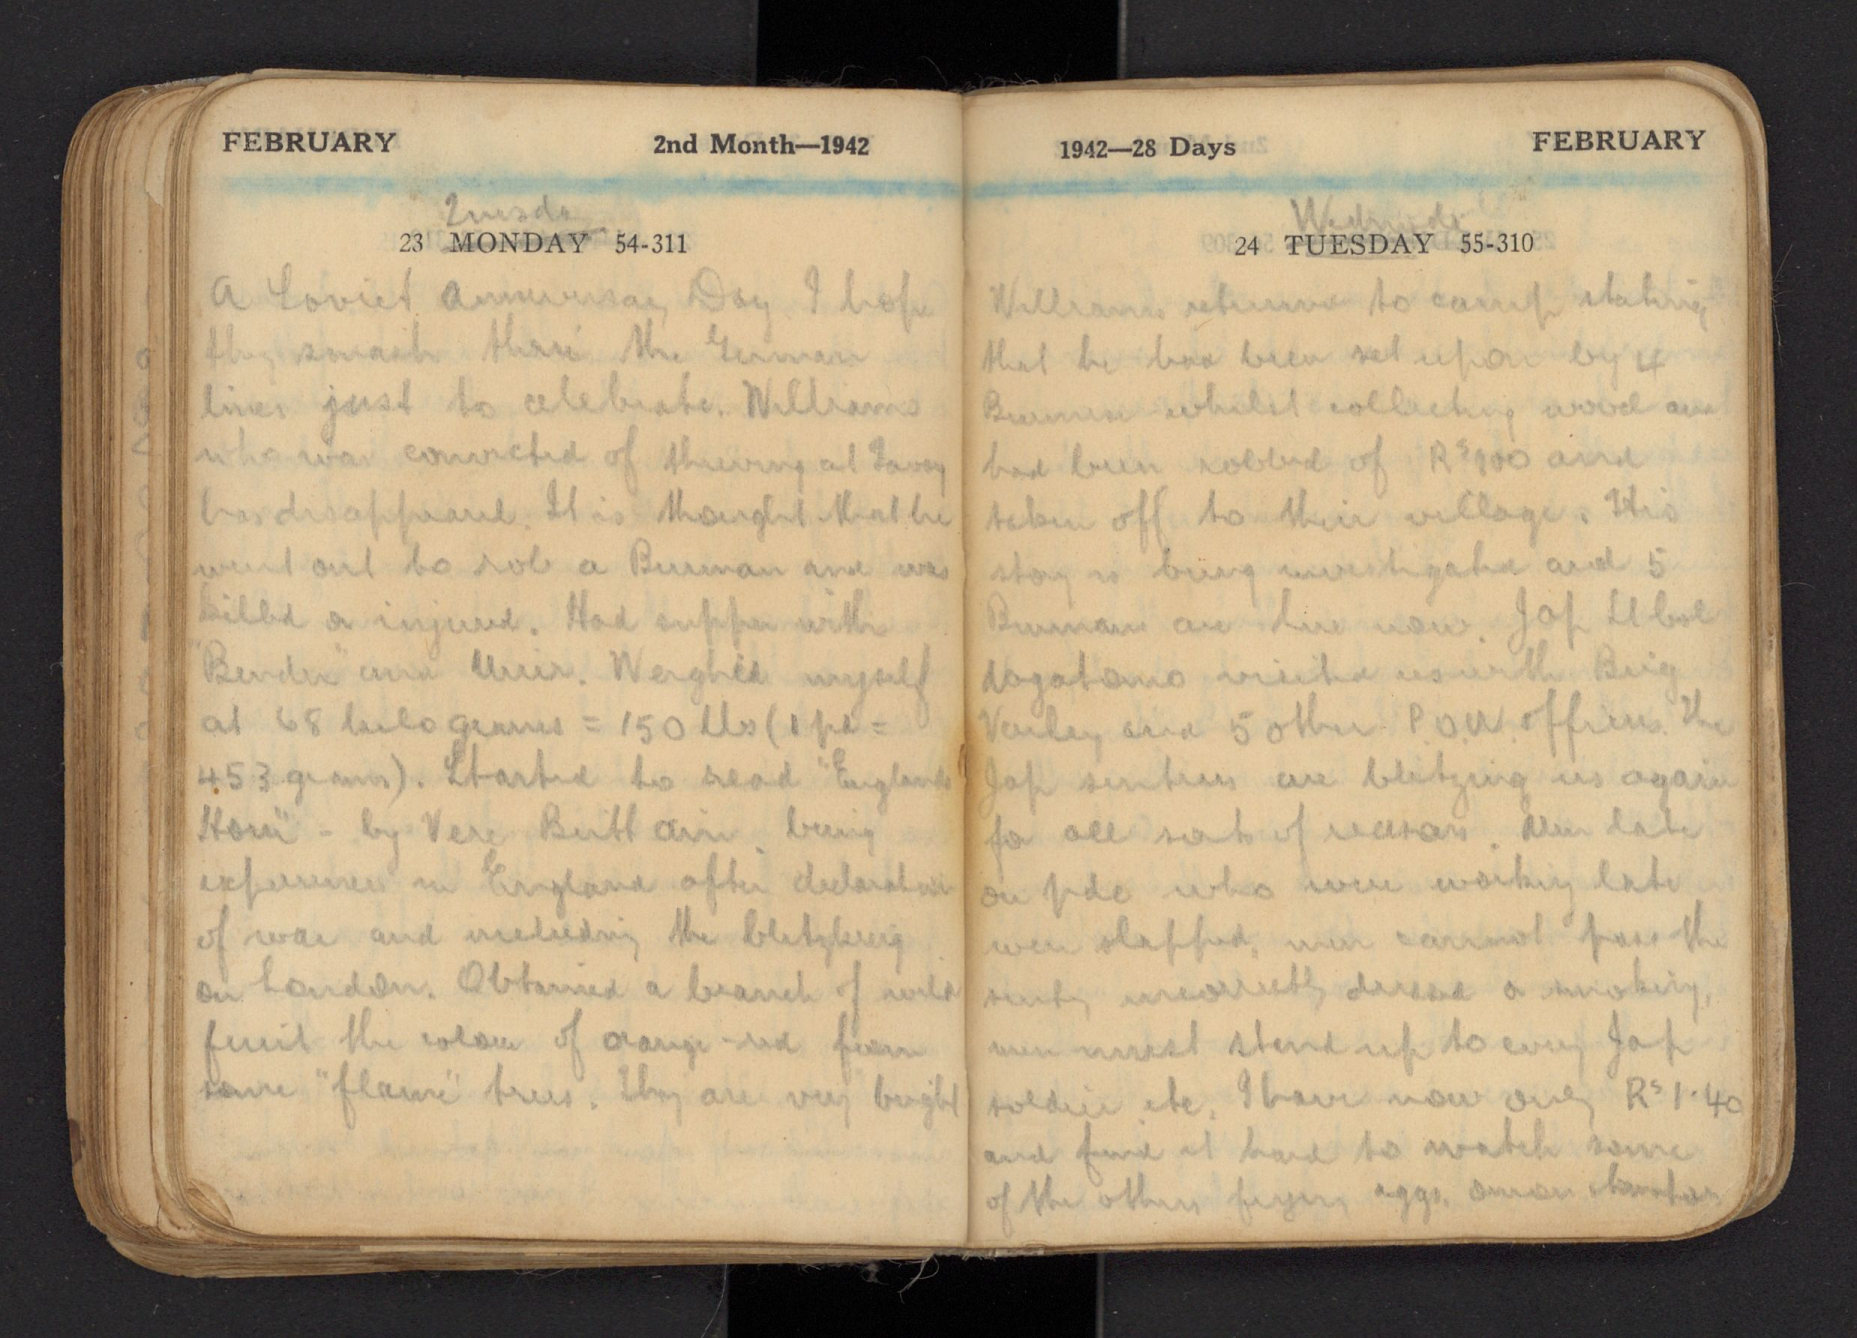 FEBRUARY 2nd Month—1942
Tuesda
23 MONDAY 54-311
A Soviet Anniversay Day I hope
they smash thro' the German
lines just to celebrate. Williams
who was convicted of thieving at Tavoy
has disappeared. It is thought that he
went out to rob a Burman and was
killed or injured. Had supper with
"Bender" and Muir. Weighed myself
at 68 kilograms = 150 lbs (1 pd =
453 grams). Started to read "Englands
Hour" - by Vere Brittain, being
experiences in England after declaration
of war and including the blitzkrieg
on London. Obtained a branch of wild
fruit the colour of orange-red from
some "flame" trees. They are very bright
1942—28 Days FEBRUARY
Wednesda
24 TUESDAY 55-310
Williams returned to camp stating
that he had been set upon by 4
Burmese whilst collecting wood and
had been robbed of Rs 900 and
taken off to their village. His
story is being investigated and 5
Burmans are here now. Jap Lt Col
Nagatomo visited us with Brig
Varley and 5 other P.O.W. officers. The
Jap sentries are blitzing us again
for all sorts of reasons. Men late
on pde who were working late
were slapped, men cannot pass the
sentry incorrectly dressed or smoking,
men must stand up to every Jap
soldier etc. I have now only Rs 1.40
and find it hard to watch some
of the others frying eggs, onion